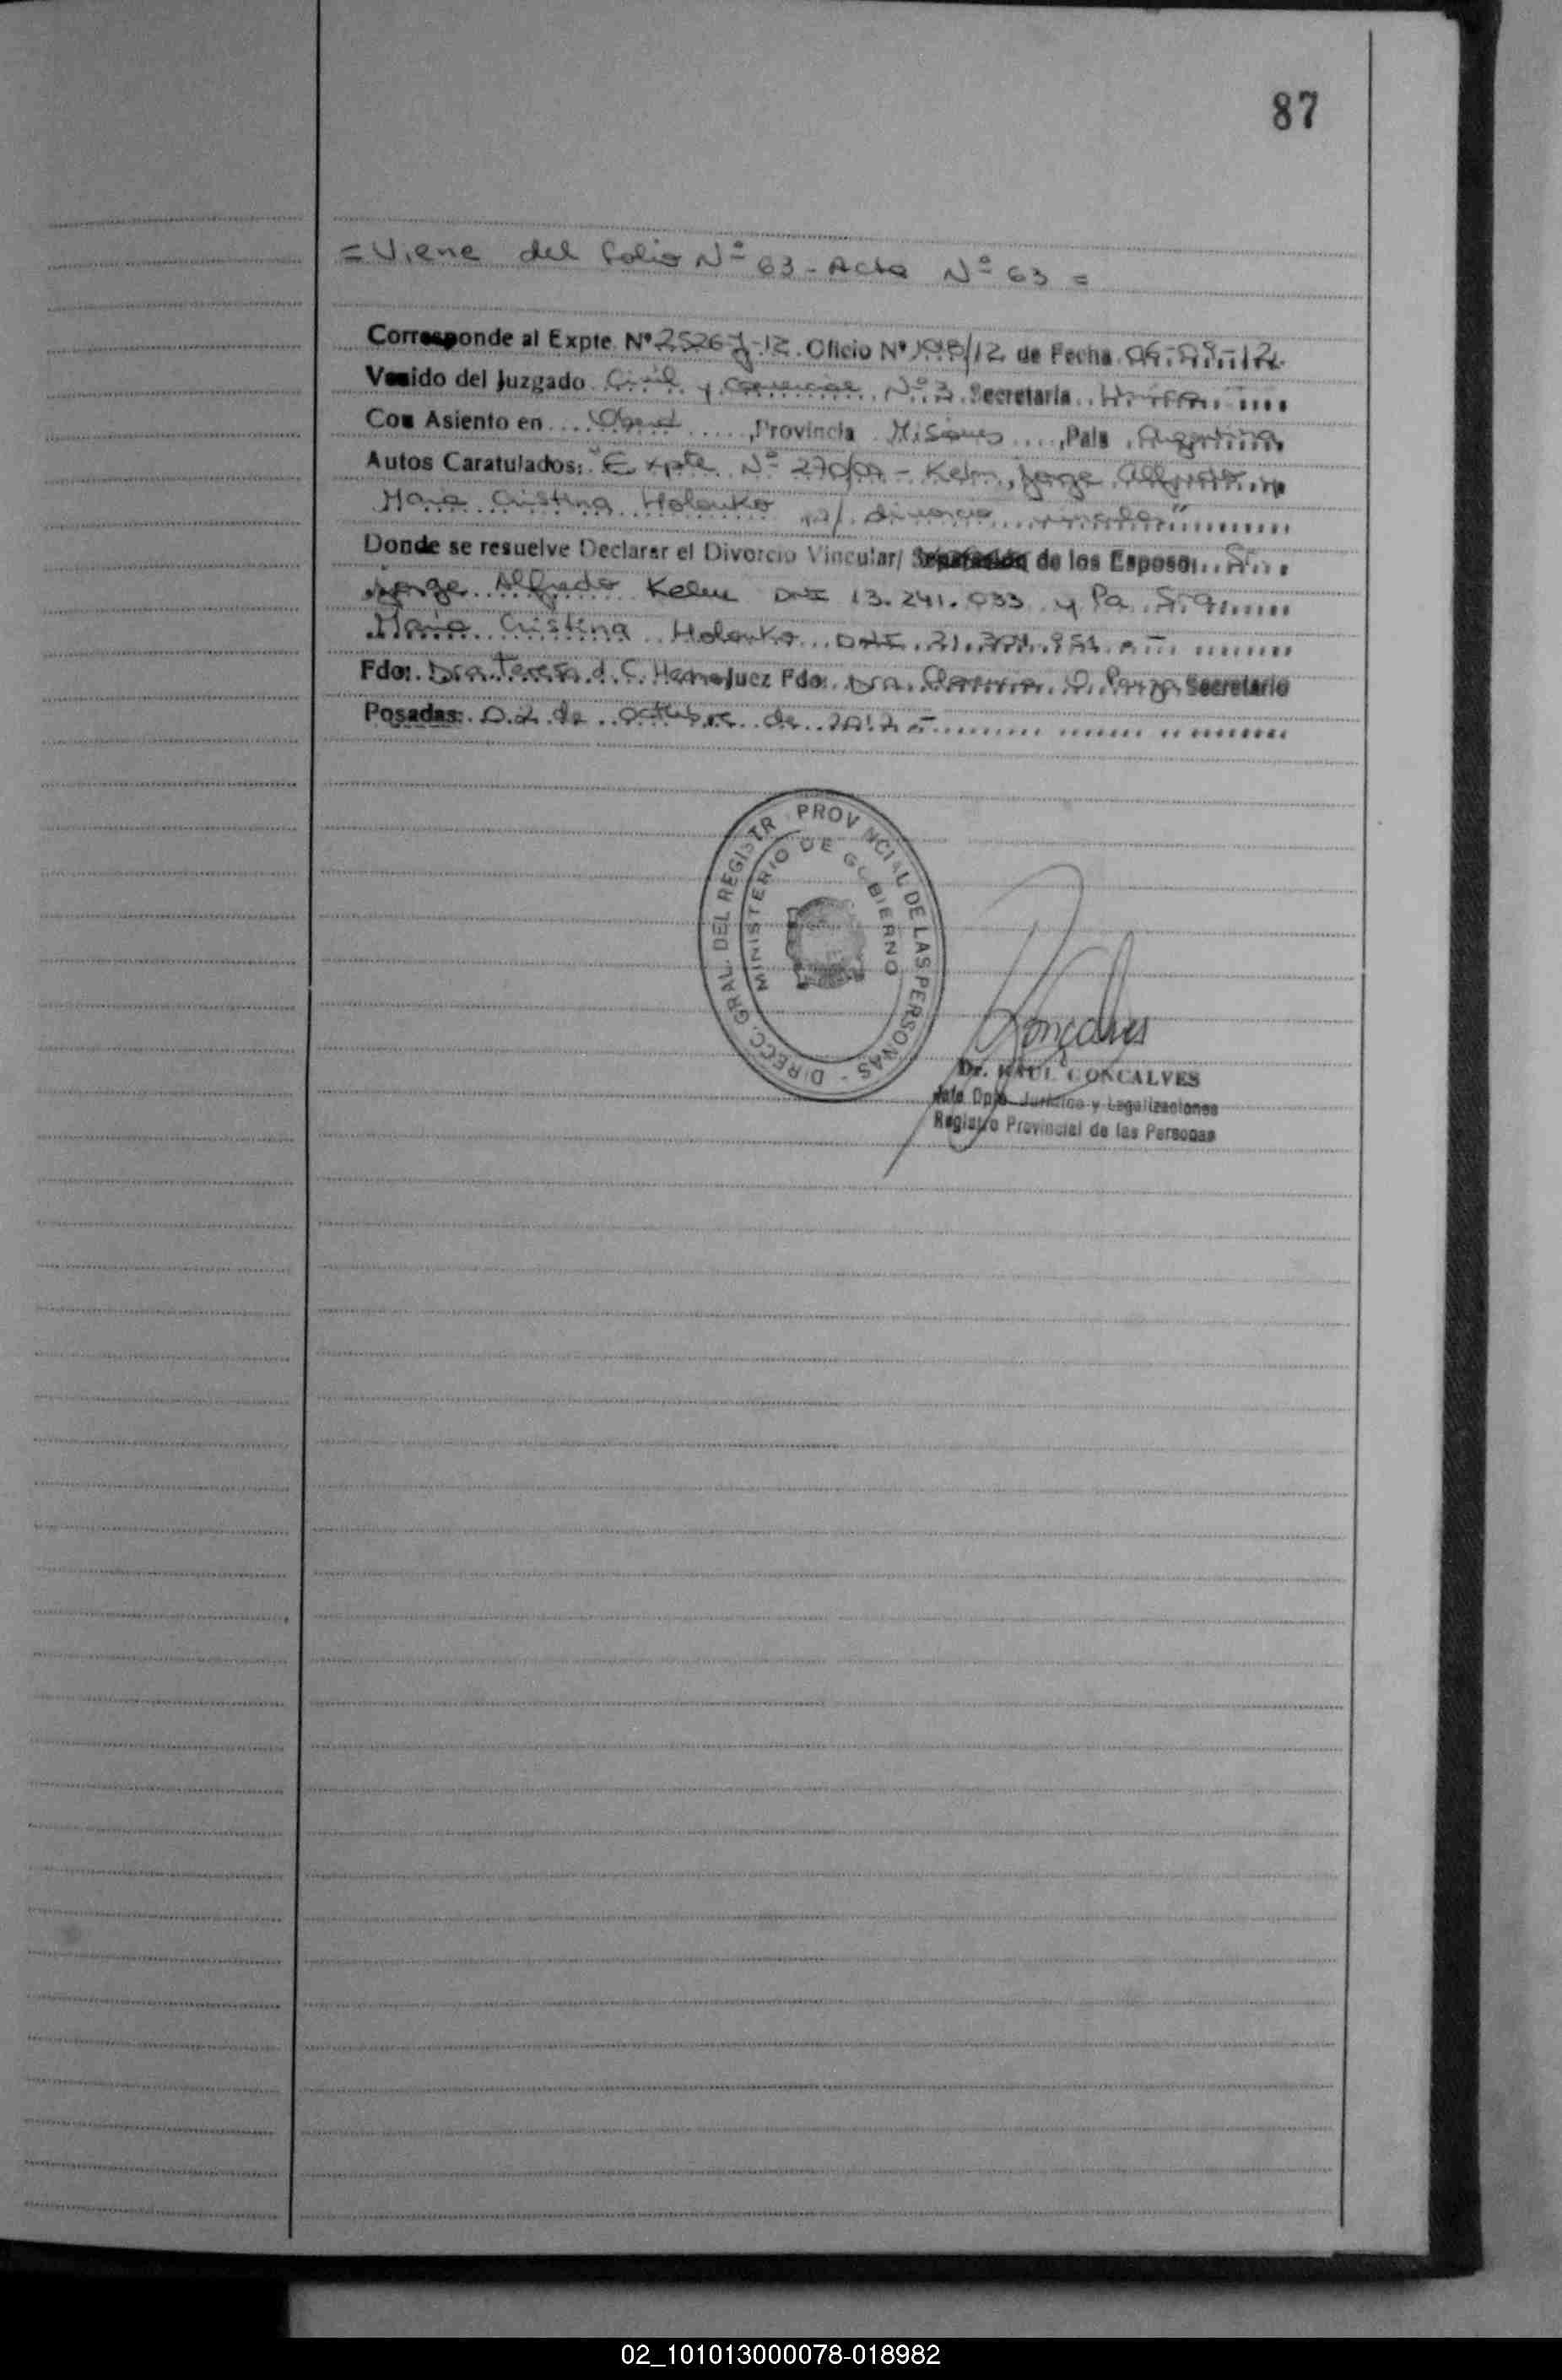 87
= Viene del folio Nº 63 - Acta Nº 63 =
Corresponde al Expte. Nº 2526-J-12. Oficio Nº /12 de Fecha 06-09-12.
Venido del Juzgado Civil y Comercial Nº 2 Secretaría
Con Asiento en Oberá, Provincia Misiones, País Argentina
Autos Caratulados: "Expte. Nº 270/07 - Kelm, Jorge Alfredo
María Cristina Holowko s/ divorcio vincular"
Donde se resuelve Declarar el Divorcio Vincular/ Separación de los Esposo: Sr.
Jorge Alfredo Kelm DNI 13.241.033 y la Sra
María Cristina Holowko DNI
Fdo: Dra. Teresa Juez Fdo: Dra. Secretario
Posadas: 02 de octubre de 2012 =
DIRECC. GRAL. DEL REGISTR PROVINCIAL DE LAS PERSONAS -
MINISTERIO DE GOBIERNO
Gonçalves
Dr. RAUL GONCALVES
Jefe Dpto. Jurídico y Legalizaciones
Registro Provincial de las Personas
02_101013000078-018982